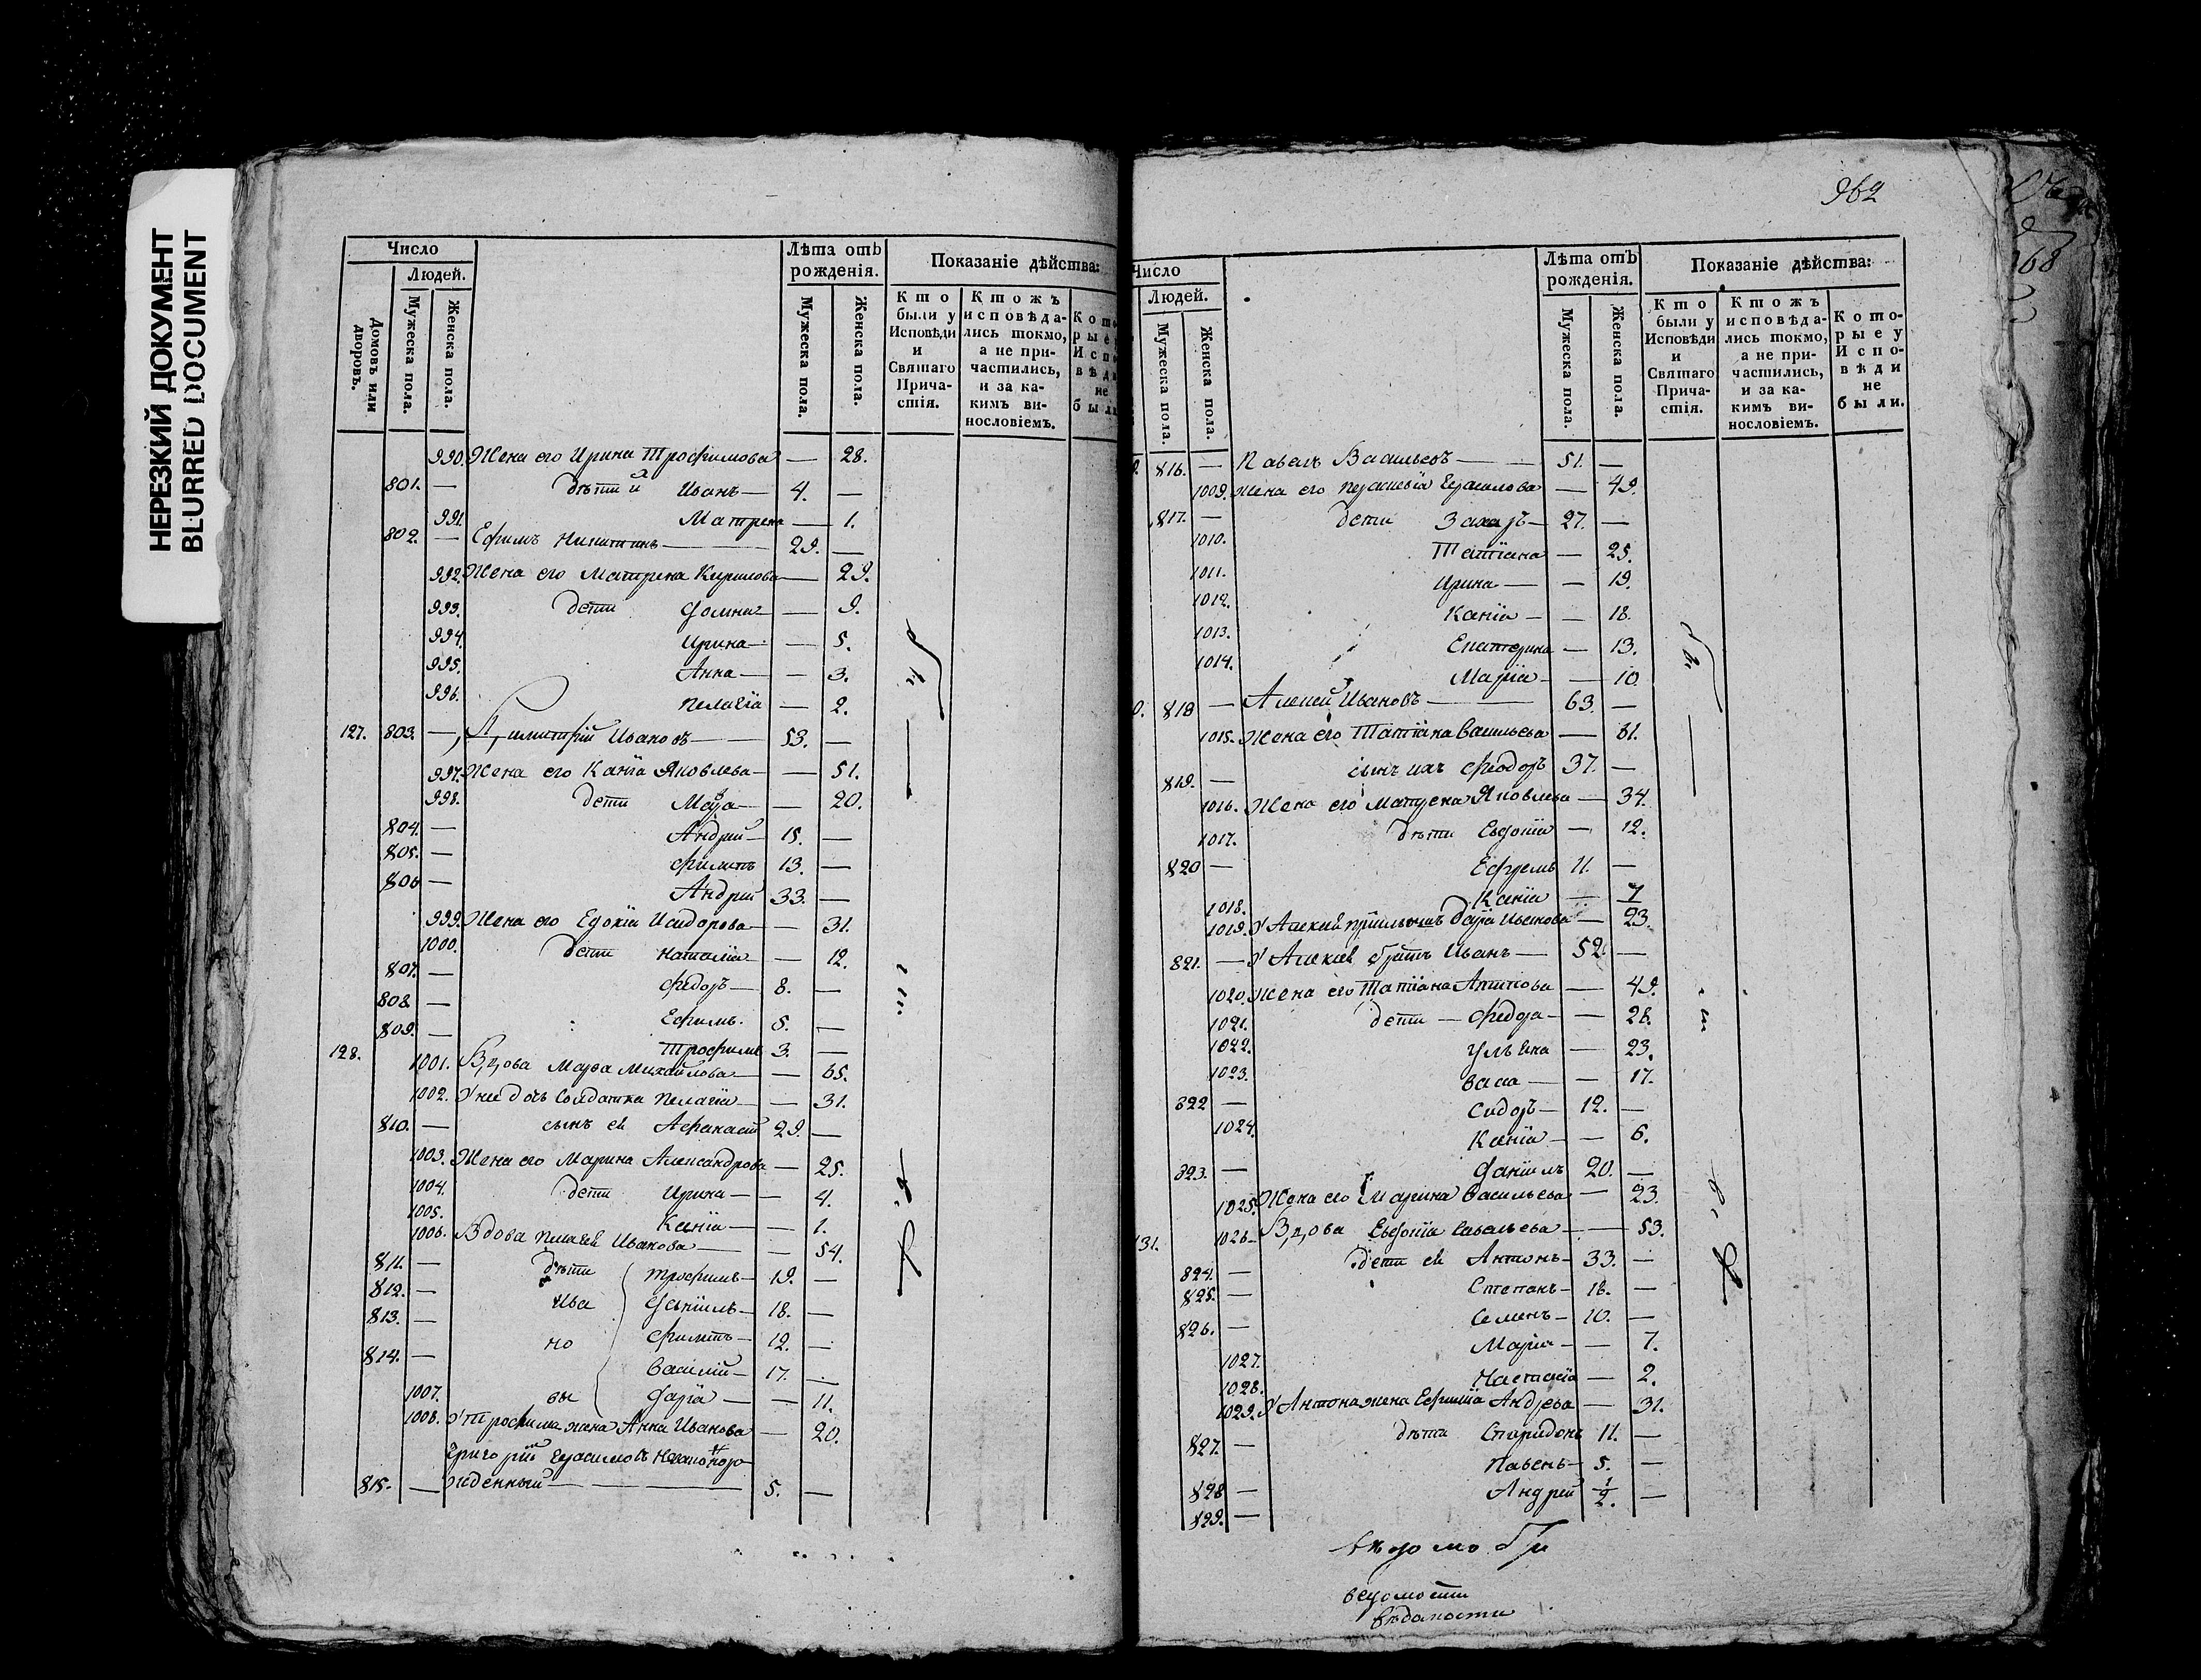 НЕРЕЗКИЙ ДОКУМЕНТ
BLURRED DOCUMENT
Число
Людей.
Домовъ или дворовъ.
Мужеска пола.
Женска пола.
Лѣта отъ рожденія.
Мужеска пола.
Женска пола.
Показаніе дѣйства:
Кто были у Исповѣди и Святаго Причастія.
Ктожъ исповѣдались токмо, а не причастились, и за какимъ винословіемъ.
990. Жена его Ирина Трофимова — 28.
801. — дѣти и Иванъ — 4. —
991. Матрена — 1.
802. — Ефимъ Никитинъ — 29. —
992. Жена его Матрена Кирилова — 29.
993. дети Домна — 9.
994. Ирина — 5.
995. Анна — 3.
996. Пелагія — 2.
127. 803. — Димитрій Ивановъ — 53. —
997. Жена его Каніа Яковлева — 51.
998. дети Марѳа — 20.
804. — Андрей — 15. —
805. — Филипъ 13. —
806 — Андрей 33. —
999. Жена его Едокіа Исидорова — 31.
1000. дети Наталіа — 12.
807. — Федоръ — 8. —
808. — Ефимъ. 5. —
809. — Трофимъ 3. —
128. 1001. Вдова Марѳа Михайлова — 65.
1002. У неи дочь Солдатка Пелагіа — 31.
810. — сынъ ей Афанасій 29. —
1003. Жена его Марина Александрова — 25.
1004. дети Ирина — 4.
1005. Ксеніа — 1.
1006. Вдова Пелагей Иванова — 54.
811. — дѣти Трофимъ — 19. —
812. — Ива Даніилъ — 18. —
813. — но Филипъ — 12. —
814. — Василій — 17. —
1007. вы Даріа — 11.
1008. У Трофима жена Анна Иванова — 20.
Григорій Герасимовъ Незаконоро
815. — жденный — 5. —
962
Число
Людей.
Мужеска пола.
Женска пола.
Лѣта отъ рожденія.
Мужеска пола.
Женска пола.
Показаніе дѣйства:
Кто были у Исповѣди и Святаго Причастія.
Ктожъ исповѣдались токмо, а не причастились, и за какимъ винословіемъ.
Которые у Исповѣди не были.
816. — Павелъ Васильевъ — 51. —
1009. Жена его Параскевіа Герасимова — 49.
817. — дети Захаръ — 27. —
1010. Татіана — 25.
1011. Ирина — 19.
1012. Каніа — 18.
1013. Екатерина — 13.
1014. Маріа — 10
818 — Алексей Ивановъ — 63. —
1015. Жена его Татіана Васильева — 61.
819. — сынъ ихъ Феодоръ 37. —
1016. Жена его Матрена Яковлева — 34.
1017. дѣти Евдокіа — 12.
820 — Ефремъ 11. —
1018. Ксеніа — 7
1019. У Алексия Даріа Иванова — 23.
821. — У Алексея братъ Иванъ — 52. —
1020. Жена его Татіана Антипова — 49.
1021. дети — Федора — 28.
1022. Ульяна — 23.
1023. Васа — 17.
822 — Сидоръ — 12. —
1024. Ксеніа — 6.
823. — Даніилъ 20. —
1025. Жена его Марина Васильева — 23.
131. 1026 Вдова Евдокіа Савельева — 53.
824. — дети ей Антонъ — 33. —
825. — Степанъ — 18. —
826. — Семенъ — 10. —
1027. Маріа — 7.
1028. Настасіа — 2.
1029. У Антона жена Ефиміа Андреева — 31.
827. — дѣти Спиридонъ 11. —
828 — Павелъ — 5. —
829. — Андрей 1/2. —
ведомости
вѣдомости
68